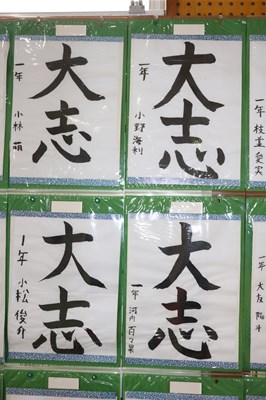 大志
一年 小林 萌
大志
一年 小野 海利
一年 枝並 愛実
大志
1年 小松 俊介
大志
一年 河内 百々果
大友 陽斗